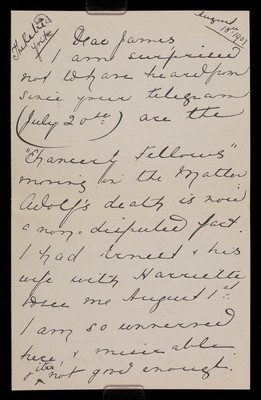 August
18th 1901
Dear James
I am surprised
not to have heard from
since your telegram
(July 20th) are the
"Chancery Fellows"
moving in the Matter
Adolf's death is now
a non-disputed fact.
I had Ernest & his
wife with Harriette
to see me August 1st.
I am so unnerved
here & miserable
its not good enough.